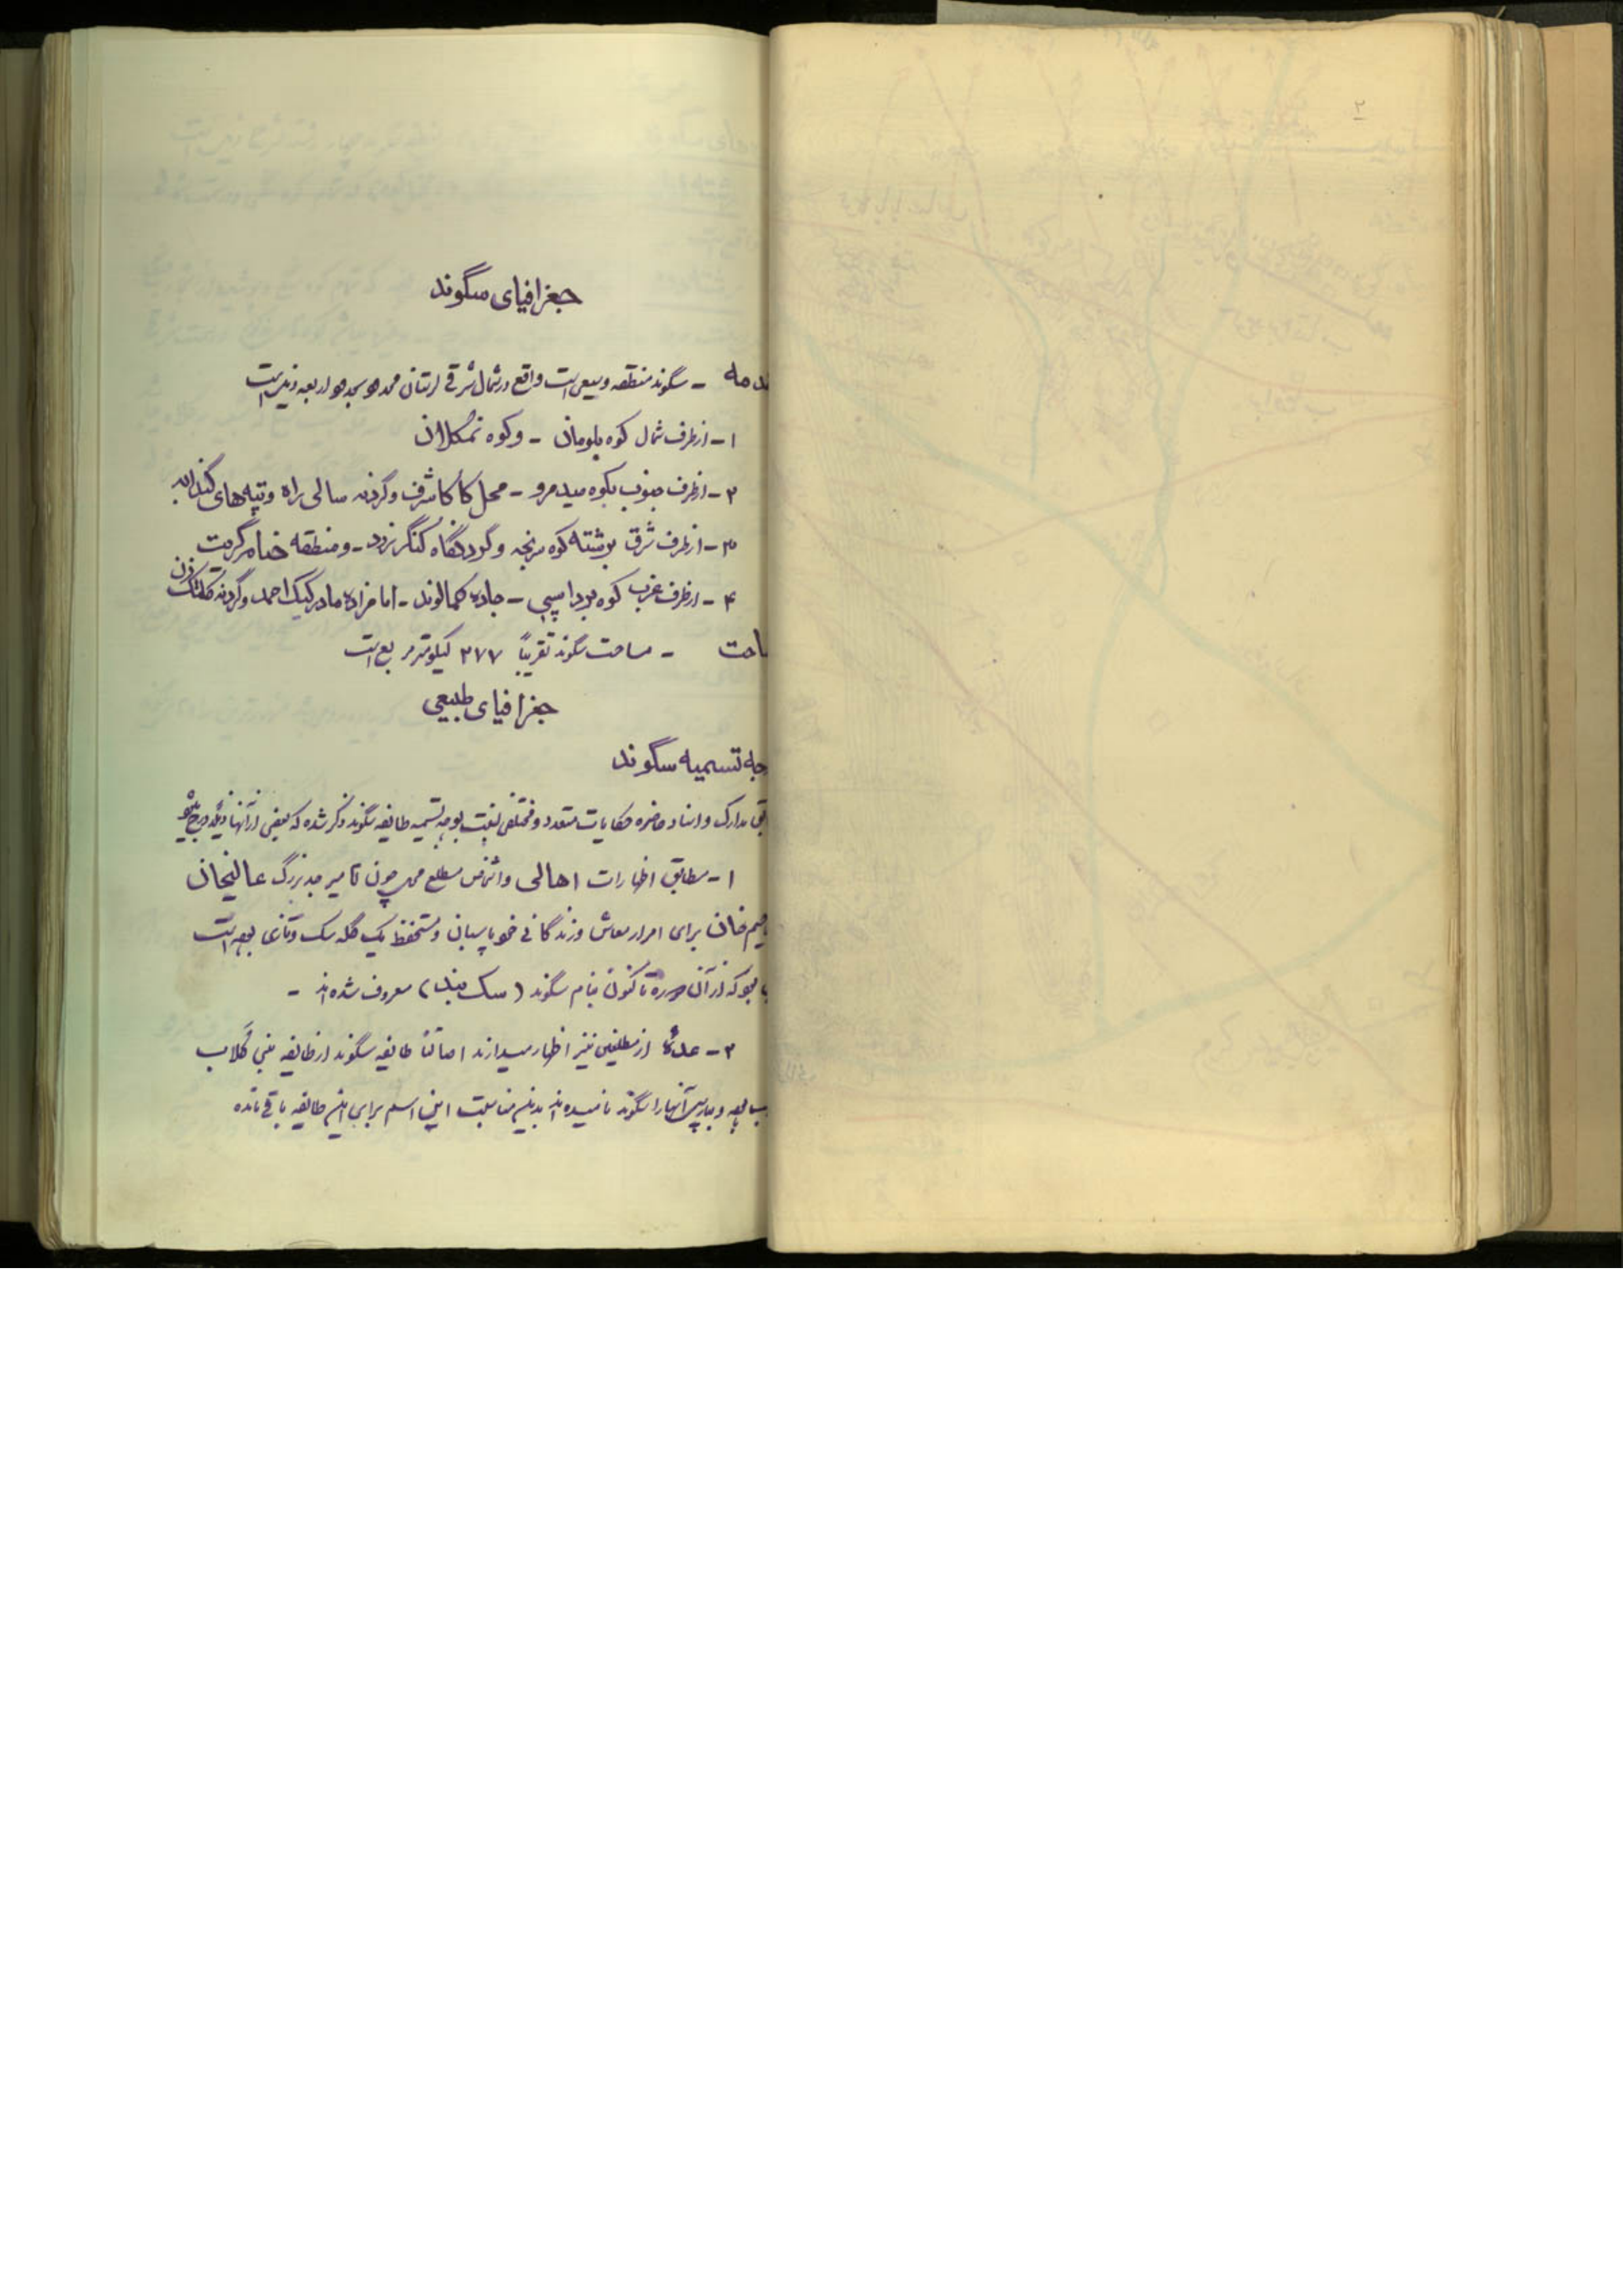 ۲
جغرافیای سگوند
دمه - سگوند منطقه وسیعی است واقع در شمال شرقی لرستان محدود بحدود اربعه زیر است
۱- از طرف شمال کوه پلومان - و کوه تمکلان
۲- از طرف جنوب بکوه میدمرو - محل کاکاشرف و گردنه سالی راه و تپه های
۳- از طرف شرق برشته کوه برنجه و گردنگاه کنگربزرد - و منطقه
۴- از طرف غرب کوه برداسپی - جاده کمالوند - امامزاده مادر کیک احمد و گردنه
احت - مساحت سگوند تقریباً ۲۷۷ کیلومتر مربع است
جغرافیای طبیعی
جه تسمیه سگوند
مدارک و اسناد حاضره حکایات متعدد و مختلفی نسبت بوجه تسمیه طایفه سگوند ذکر شده که بعضی از آنها ذیلا درج میشود
۱- مطابق اظهارات اهالی و اشخاص مطلع محل چون تامیر جد بزرگ عالیخان
رحیم خان برای امرار معاش و زندگانی خود پاسبان و مستحفظ یک گله سگ و تازی بوده است
که از آن دوره تا کنون بنام سگوند (سگ بند) معروف شده اند -
۲- عده از مطلعین نیز اظهار میدارند اصالتاً طایفه سگوند از طایفه بنی کلاب
بوده و بپارسی آنها را سگوند نامیده اند بدین مناسبت این اسم برای این طایفه باقی مانده